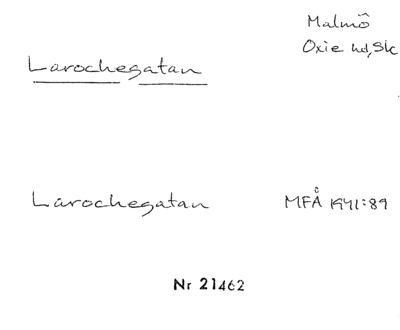 Malmö
Oxie hd, Sk
Larochegatan
Larochegatan MFÅ 1941:89
Nr 21462